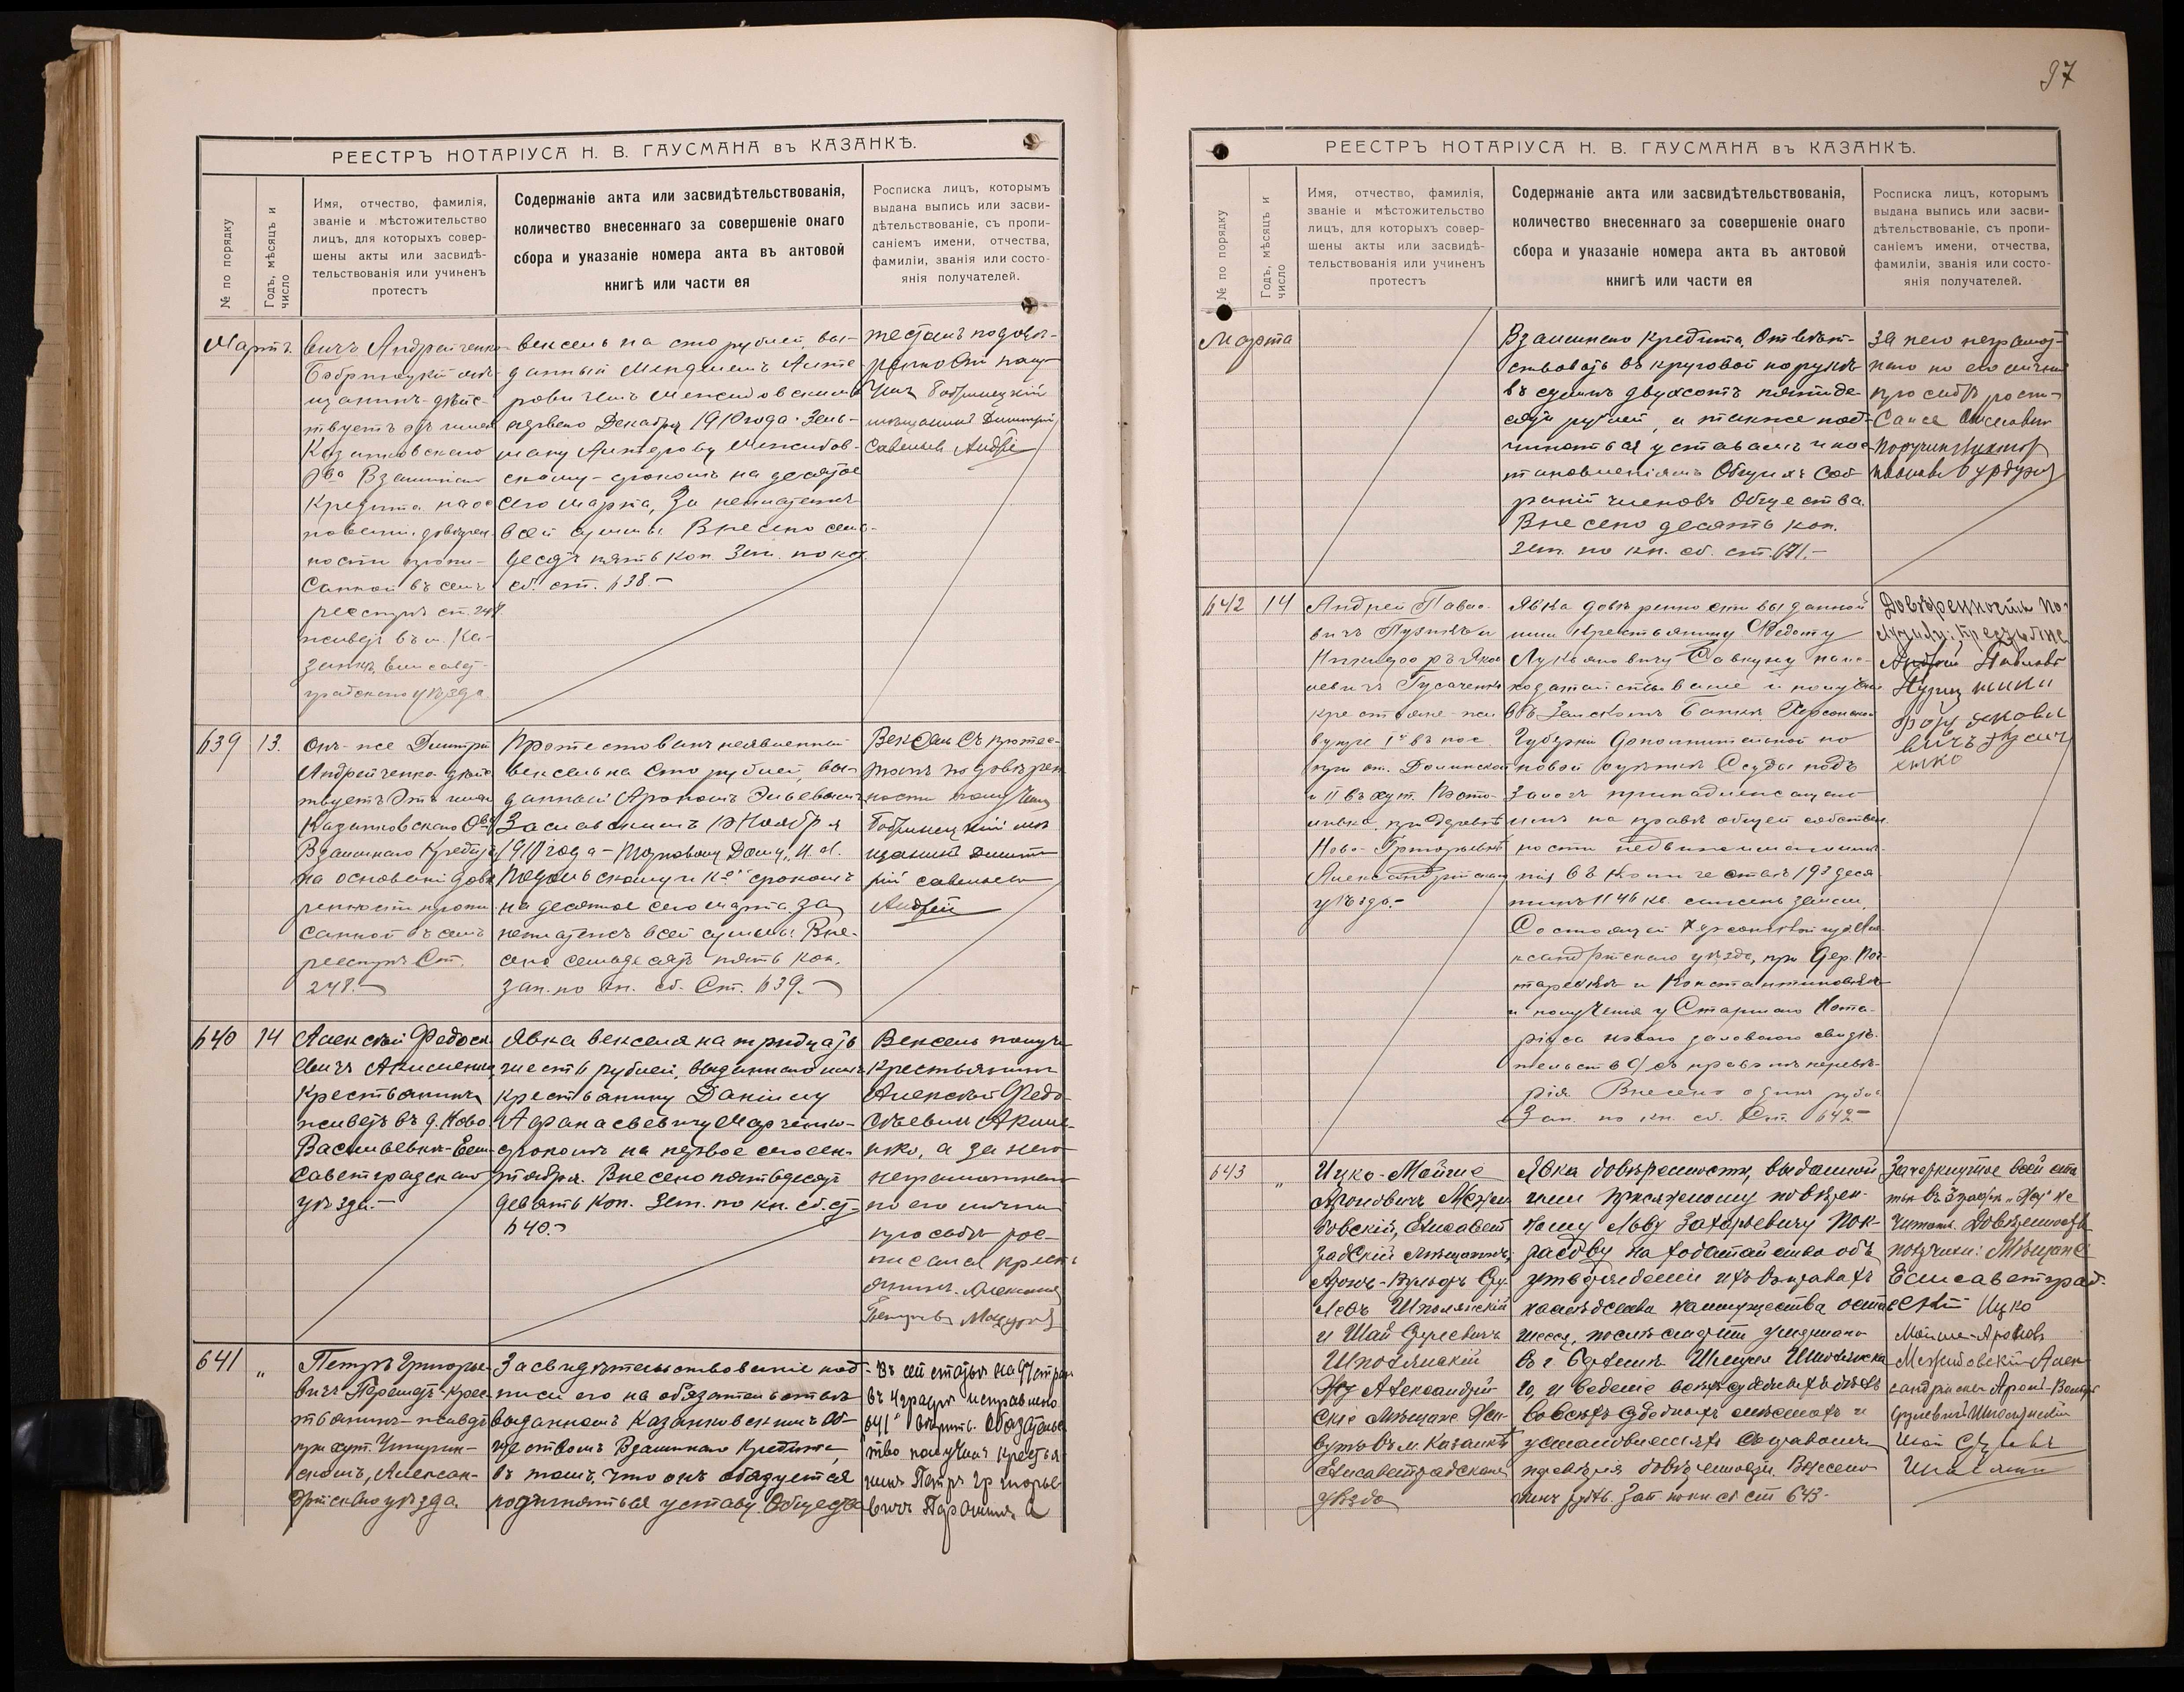 97
РЕЕСТРЪ НОТАРІУСА Н. В. ГАУСМАНА въ КАЗАНКѢ.
№ по порядку
Годъ, мѣсяцъ и число
Имя, отчество, фамилія,
званіе и мѣстожительство
лицъ, для которыхъ совер-
шены акты или засвидѣ-
тельствованія или учиненъ
протестъ
Содержаніе акта или засвидѣтельствованія,
количество внесеннаго за совершеніе онаго
сбора и указаніе номера акта въ актовой
книгѣ или части ея
Росписка лицъ, которымъ
выдана выпись или засви-
дѣтельствованіе, съ пропи-
саніемъ имени, отчества,
фамиліи, званія или состо-
янія получателей.
Мартъ.
вичъ Андрейченко
Бобринецкій мѣ-
щанинъ - дѣйс-
твуетъ отъ имени
Казанковскаго
О-ва Взаимнаго
Кредита на ос-
новании довѣрен-
ности пропи-
санной въ семъ
реестрѣ ст. 248
живетъ въ м. Ка-
занкѣ, Елисавет-
градскаго уѣзда.
вексель на сто рублей, вы-
данный Менделемъ Анте-
ровичемъ Межидовскимъ
перваго Декабря 1910 года Зель-
ману Антерову Межибов-
скому - срокомъ на десятое
сего марта, за неплатежъ
всей суммы. Внесено семь-
десятъ пять коп. Зап. по кн.
сб. ст. 638.-
тестомъ по довѣ-
ренности полу-
чилъ Бобринецкій
мѣщанинъ Димитрій
Савельевъ Андре
639
13.
Онъ-же Димитрій
Андрейченко дѣйс-
твуетъ отъ имени
Казанковскаго О-ва
Взаимнаго Кредита
на основаніи довѣ-
ренности пропи-
санной въ семъ
реестрѣ Ст.
248.-
Протестованъ неявленный
вексель на сто рублей, вы-
данный Арономъ Эльевымъ
Заславскимъ 10 Ноября
1910 года - Торговому Дому
Подольскому и К-о срокомъ
на десятое сего марта, за
неплатежъ всей суммы. Вне-
сено семьдесятъ пять коп.
Зап. по кн. сб. Ст. 639.-
Вексель съ протес-
томъ по довѣрен-
ности получилъ
Бобринецкій мѣ-
щанинъ Димит-
рій Савельевъ
Андрей
640
14
Алексѣй Федосѣ-
евичъ Акименко
крестьянинъ
живетъ въ д. Ново
Васильевкѣ - Ели-
саветградскаго
уѣзда.-
Явка векселя на тридцать
шесть рублей, выданнаго имъ
крестьянину Даніилу
Афанасьевичу Марченко -
срокомъ на первое сего сен-
тября. Внесено пятьдесятъ
девять коп. Зап. по кн. сб. ст.
640.-
Вексель получилъ
Крестьянинъ
Алексѣй Федо-
сѣевичъ Акиме-
нко, а за него
неграмотнаго
по его личной
просьбѣ рос-
писался крест-
янинъ Алексей
Петровъ
641
„
Петръ Григорье-
вичъ -крес-
тьянинъ - живетъ
при хут.
скомъ, Алексан-
дрійскаго уѣзда.
Засвидѣтельствованіе под-
писи его на обязательствѣ
выданномъ Казанковскимъ Об-
ществомъ Взаимнаго Кредита,
въ томъ, что онъ обязуется
подчиняться уставу Общества
- Въ сей статьѣ на 97 стран.
въ 4 графѣ исправлено
„641“ вѣрить. Обязатель-
тво получилъ крестья-
нинъ Петръ Григорье-
вичъ а
РЕЕСТРЪ НОТАРІУСА Н. В. ГАУСМАНА въ КАЗАНКѢ.
№ по порядку
Годъ, мѣсяцъ и число
Имя, отчество, фамилія,
званіе и мѣстожительство
лицъ, для которыхъ совер-
шены акты или засвидѣ-
тельствованія или учиненъ
протестъ
Содержаніе акта или засвидѣтельствованія,
количество внесеннаго за совершеніе онаго
сбора и указаніе номера акта въ актовой
книгѣ или части ея
Росписка лицъ, которымъ
выдана выпись или засви-
дѣтельствованіе, съ пропи-
саніемъ имени, отчества,
фамиліи, званія или состо-
янія получателей.
Марта
Взаимнаго Кредита. Отвѣт-
ствовать въ круговой порукѣ
въ суммѣ двухсотъ пятиде-
сяти рублей, а также под-
чиняться уставамъ и пос-
тановленіямъ Общихъ Соб-
раній членовъ Общества.
Внесено десять коп.
Зап. по кн. сб. ст. 641.-
за него неграмот-
наго по его личной
просьбѣ роспи-
642
14
Андрей Павло-
вичъ Пузикъ и
Никифоръ Яков-
левичъ Гусаченко
крестьяне - жи-
вущіе Iй въ пос.
при ст. Долинской
и II въ хут.
при деревнѣ
Ново-Григорьевкѣ
Александрійскаго
уѣзда.-
Явка довѣренности выданной
ими Крестьянину Федоту
Лукьяновичу Савкуну на
ходатайствованіе и полученіе
въ Земскомъ Банкѣ Херсонской
Губерніи дополнительной по
новой оцѣнкѣ Ссуды подъ
Залогъ принадлежащаго
имъ на правѣ общей собствен-
ности недвижимаго имѣ-
нія въ количествѣ 193 деся-
тинъ 1146 кв. сажень земли,
Состоящей Херсонской губ. Але-
ксандрійскаго уѣзда, при дер.
и Константиновкѣ
и полученія у Старшаго Нота-
ріуса новаго залоговаго свидѣ-
тельства съ правомъ передовѣ-
рія. Внесено одинъ рубль
Зап. по кн. сб. Ст. 642.-
Довѣренность по-
лучили: Крестьяне
Андрей Павловъ
Пузик и Ники
фор Якови
вичъ Гуса
ченко
643
„
Ицко-Мойше
Ароновичъ Межи-
бовскій, Елисавет-
градскій мѣщанинъ,
Аронъ-Вольфъ Сру-
левъ Шполянскій
и Шая Срулевичъ
Шполянскій
Александрій-
скіе мѣщане жи-
вутъ въ м. Казанкѣ
Елисаветградскаго
уѣзда
Явка довѣренности, выданной
ими присяжному повѣрен-
ному Льву Захарьевичу Пок-
расову на ходатайство объ
утвержденіи ихъ въ правахъ
наслѣдства къ имуществу остав-
шееся послѣ смерти умершаго
въ г. Одессѣ Шполянска-
го, и веденіе всѣхъ судебныхъ дѣлъ
во всѣхъ судебныхъ мѣстахъ и
установленіяхъ съ правомъ
передовѣрія довѣренности. Внесено
одинъ рубль. Зап. по кн сб ст 643.-
Зачеркнутое въ сей ста-
тьѣ въ 3 графѣ не
читать. Довѣренность
получили: Мѣщане
Елисаветград-
скій Ицко
Мойше-Аронов
Межибовскій Алек-
сандрійскіе Аронъ-Вольфъ
Срулевичъ Шполянскій
Шая Срулевъ